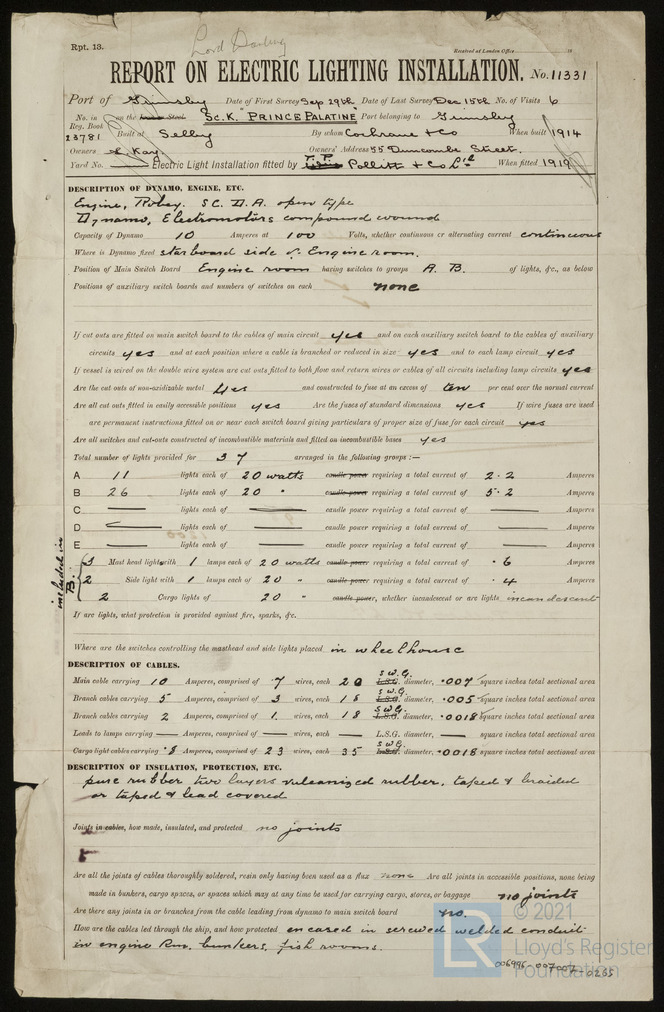 Lord Darling
Rpt. 13.
Received at London Office 19
REPORT ON ELECTRIC LIGHTING INSTALLATION. No. 11331
Port of Grimsby Date of First Survey Sep 29th Date of Last Survey Dec 15th No. of Visits 6
No. in on the Iron or Steel Sc.K. "PRINCE PALATINE" Port belonging to Grimsby
Reg. Book
23781 Built at Selby By whom Cochrane & Co When built 1914
Owners Kay Owners' Address 55 Duncombe Street.
Yard No. Electric Light Installation fitted by T. P. Pollitt & Co Ltd When fitted 1919
DESCRIPTION OF DYNAMO, ENGINE, ETC.
Engine, Robey. S.C. D.A. open type
Dynamo, Electromotors compound wound
Capacity of Dynamo 10 Amperes at 100 Volts, whether continuous or alternating current continuous
Where is Dynamo fixed starboard side of Engine room.
Position of Main Switch Board Engine room having switches to groups A. B. of lights, &c., as below
Positions of auxiliary switch boards and numbers of switches on each none
If cut outs are fitted on main switch board to the cables of main circuit yes and on each auxiliary switch board to the cables of auxiliary
circuits yes and at each position where a cable is branched or reduced in size yes and to each lamp circuit yes
If vessel is wired on the double wire system are cut outs fitted to both flow and return wires or cables of all circuits including lamp circuits yes
Are the cut outs of non-oxidizable metal yes and constructed to fuse at an excess of ten per cent over the normal current
Are all cut outs fitted in easily accessible positions yes Are the fuses of standard dimensions yes If wire fuses are used
are permanent instructions fitted on or near each switch board giving particulars of proper size of fuse for each circuit yes
Are all switches and cut-outs constructed of incombustible materials and fitted on incombustible bases yes
Total number of lights provided for 37 arranged in the following groups :—
A 11 lights each of 20 watts candle power requiring a total current of 2.2 Amperes
B 26 lights each of 20 " candle power requiring a total current of 5.2 Amperes
C — lights each of — candle power requiring a total current of — Amperes
D — lights each of — candle power requiring a total current of — Amperes
E — lights each of — candle power requiring a total current of — Amperes
included in B.
3 Mast head light with 1 lamps each of 20 watts candle power requiring a total current of .6 Amperes
2 Side light with 1 lamps each of 20 " candle power requiring a total current of .4 Amperes
2 Cargo lights of 20 " candle power, whether incandescent or arc lights incandescent
If arc lights, what protection is provided against fire, sparks, &c.
Where are the switches controlling the masthead and side lights placed in wheelhouse
DESCRIPTION OF CABLES.
Main cable carrying 10 Amperes, comprised of 7 wires, each 20 L.S.G. S.W.G. diameter, .007 square inches total sectional area
Branch cables carrying 5 Amperes, comprised of 3 wires, each 18 L.S.G. S.W.G. diameter, .005 square inches total sectional area
Branch cables carrying 2 Amperes, comprised of 1 wires, each 18 L.S.G. S.W.G. diameter, .0018 square inches total sectional area
Leads to lamps carrying — Amperes, comprised of — wires, each — L.S.G. diameter, — square inches total sectional area
Cargo light cables carrying .8 Amperes, comprised of 23 wires, each 35 L.S.G. S.W.G. diameter, .0018 square inches total sectional area
DESCRIPTION OF INSULATION, PROTECTION, ETC.
pure rubber two layers vulcanized rubber, taped & braided
or taped & lead covered
Joints in cables, how made, insulated, and protected no joints
Are all the joints of cables thoroughly soldered, resin only having been used as a flux none Are all joints in accessible positions, none being
made in bunkers, cargo spaces, or spaces which may at any time be used for carrying cargo, stores, or baggage no joints
Are there any joints or branches from the cable leading from dynamo to main switch board no.
How are the cables led through the ship, and how protected encased in screwed welded conduit
in engine Rm, bunkers, fish rooms.
LR © 2021
Lloyd's Register
Foundation
006996-007007-0265